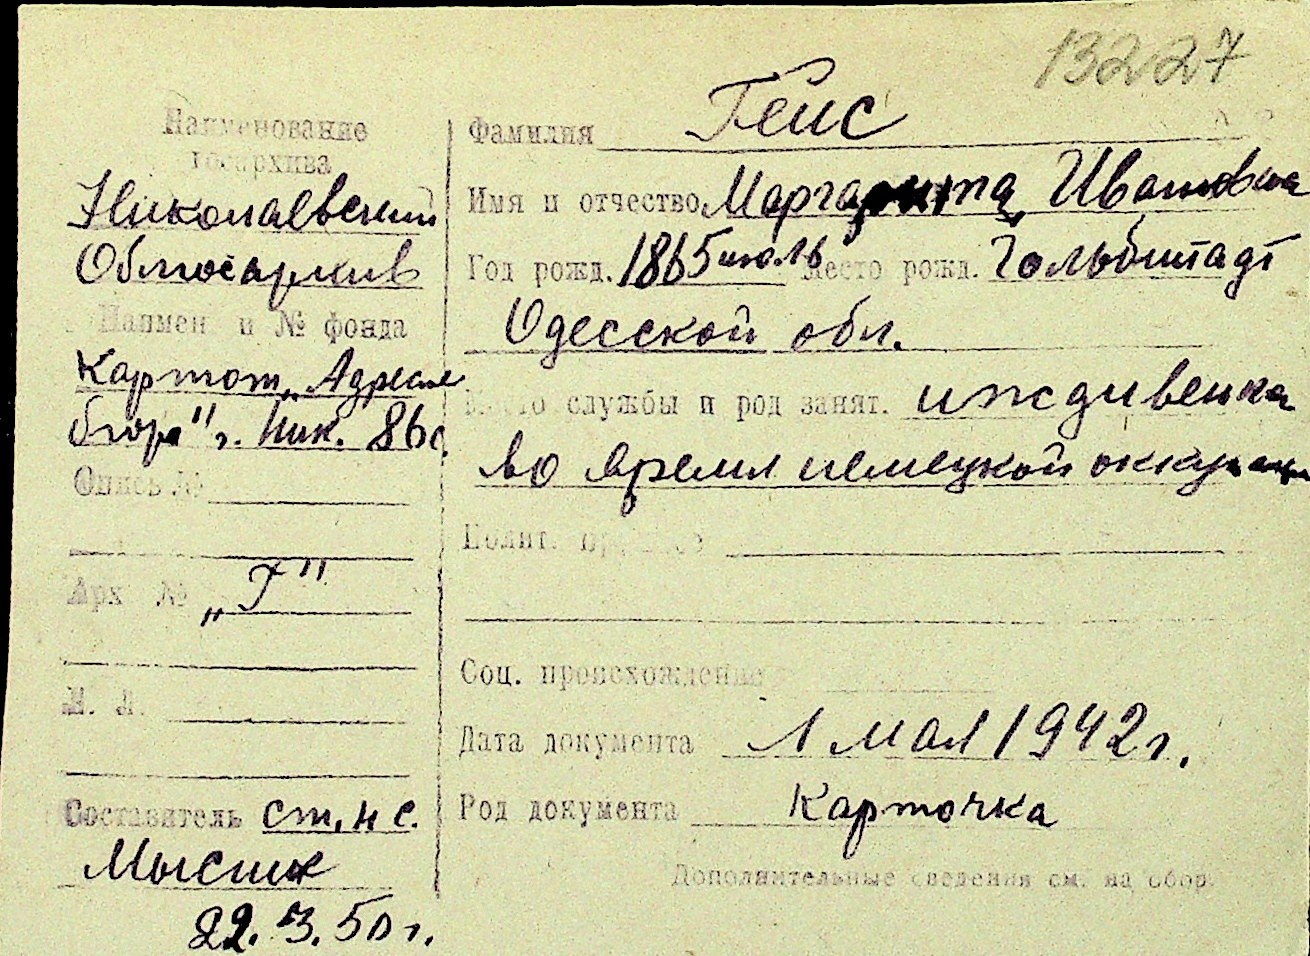 13227
Наименование
госархива
Николаевский
Облгосархив
Наимен и № фонда
Картот. „Адресное
бюро" г. Ник. 86с.
Опись №
Арх №
„Г"
Н. Л.
Составитель ст. н с.
Мысник
22.3.50 г.
Фамилия Гейс
Имя и отчество Маргарита Ивановна
Год рожд. 1865 июль Место рожд. Гольбштадт
Одесской обл.
Место службы и род занят. иждивенка
во время немецкой оккупации
Полит.
Соц. происхождение
Дата документа 1 мая 1942 г.
Род документа Карточка
Дополнительные сведения см. на обор.